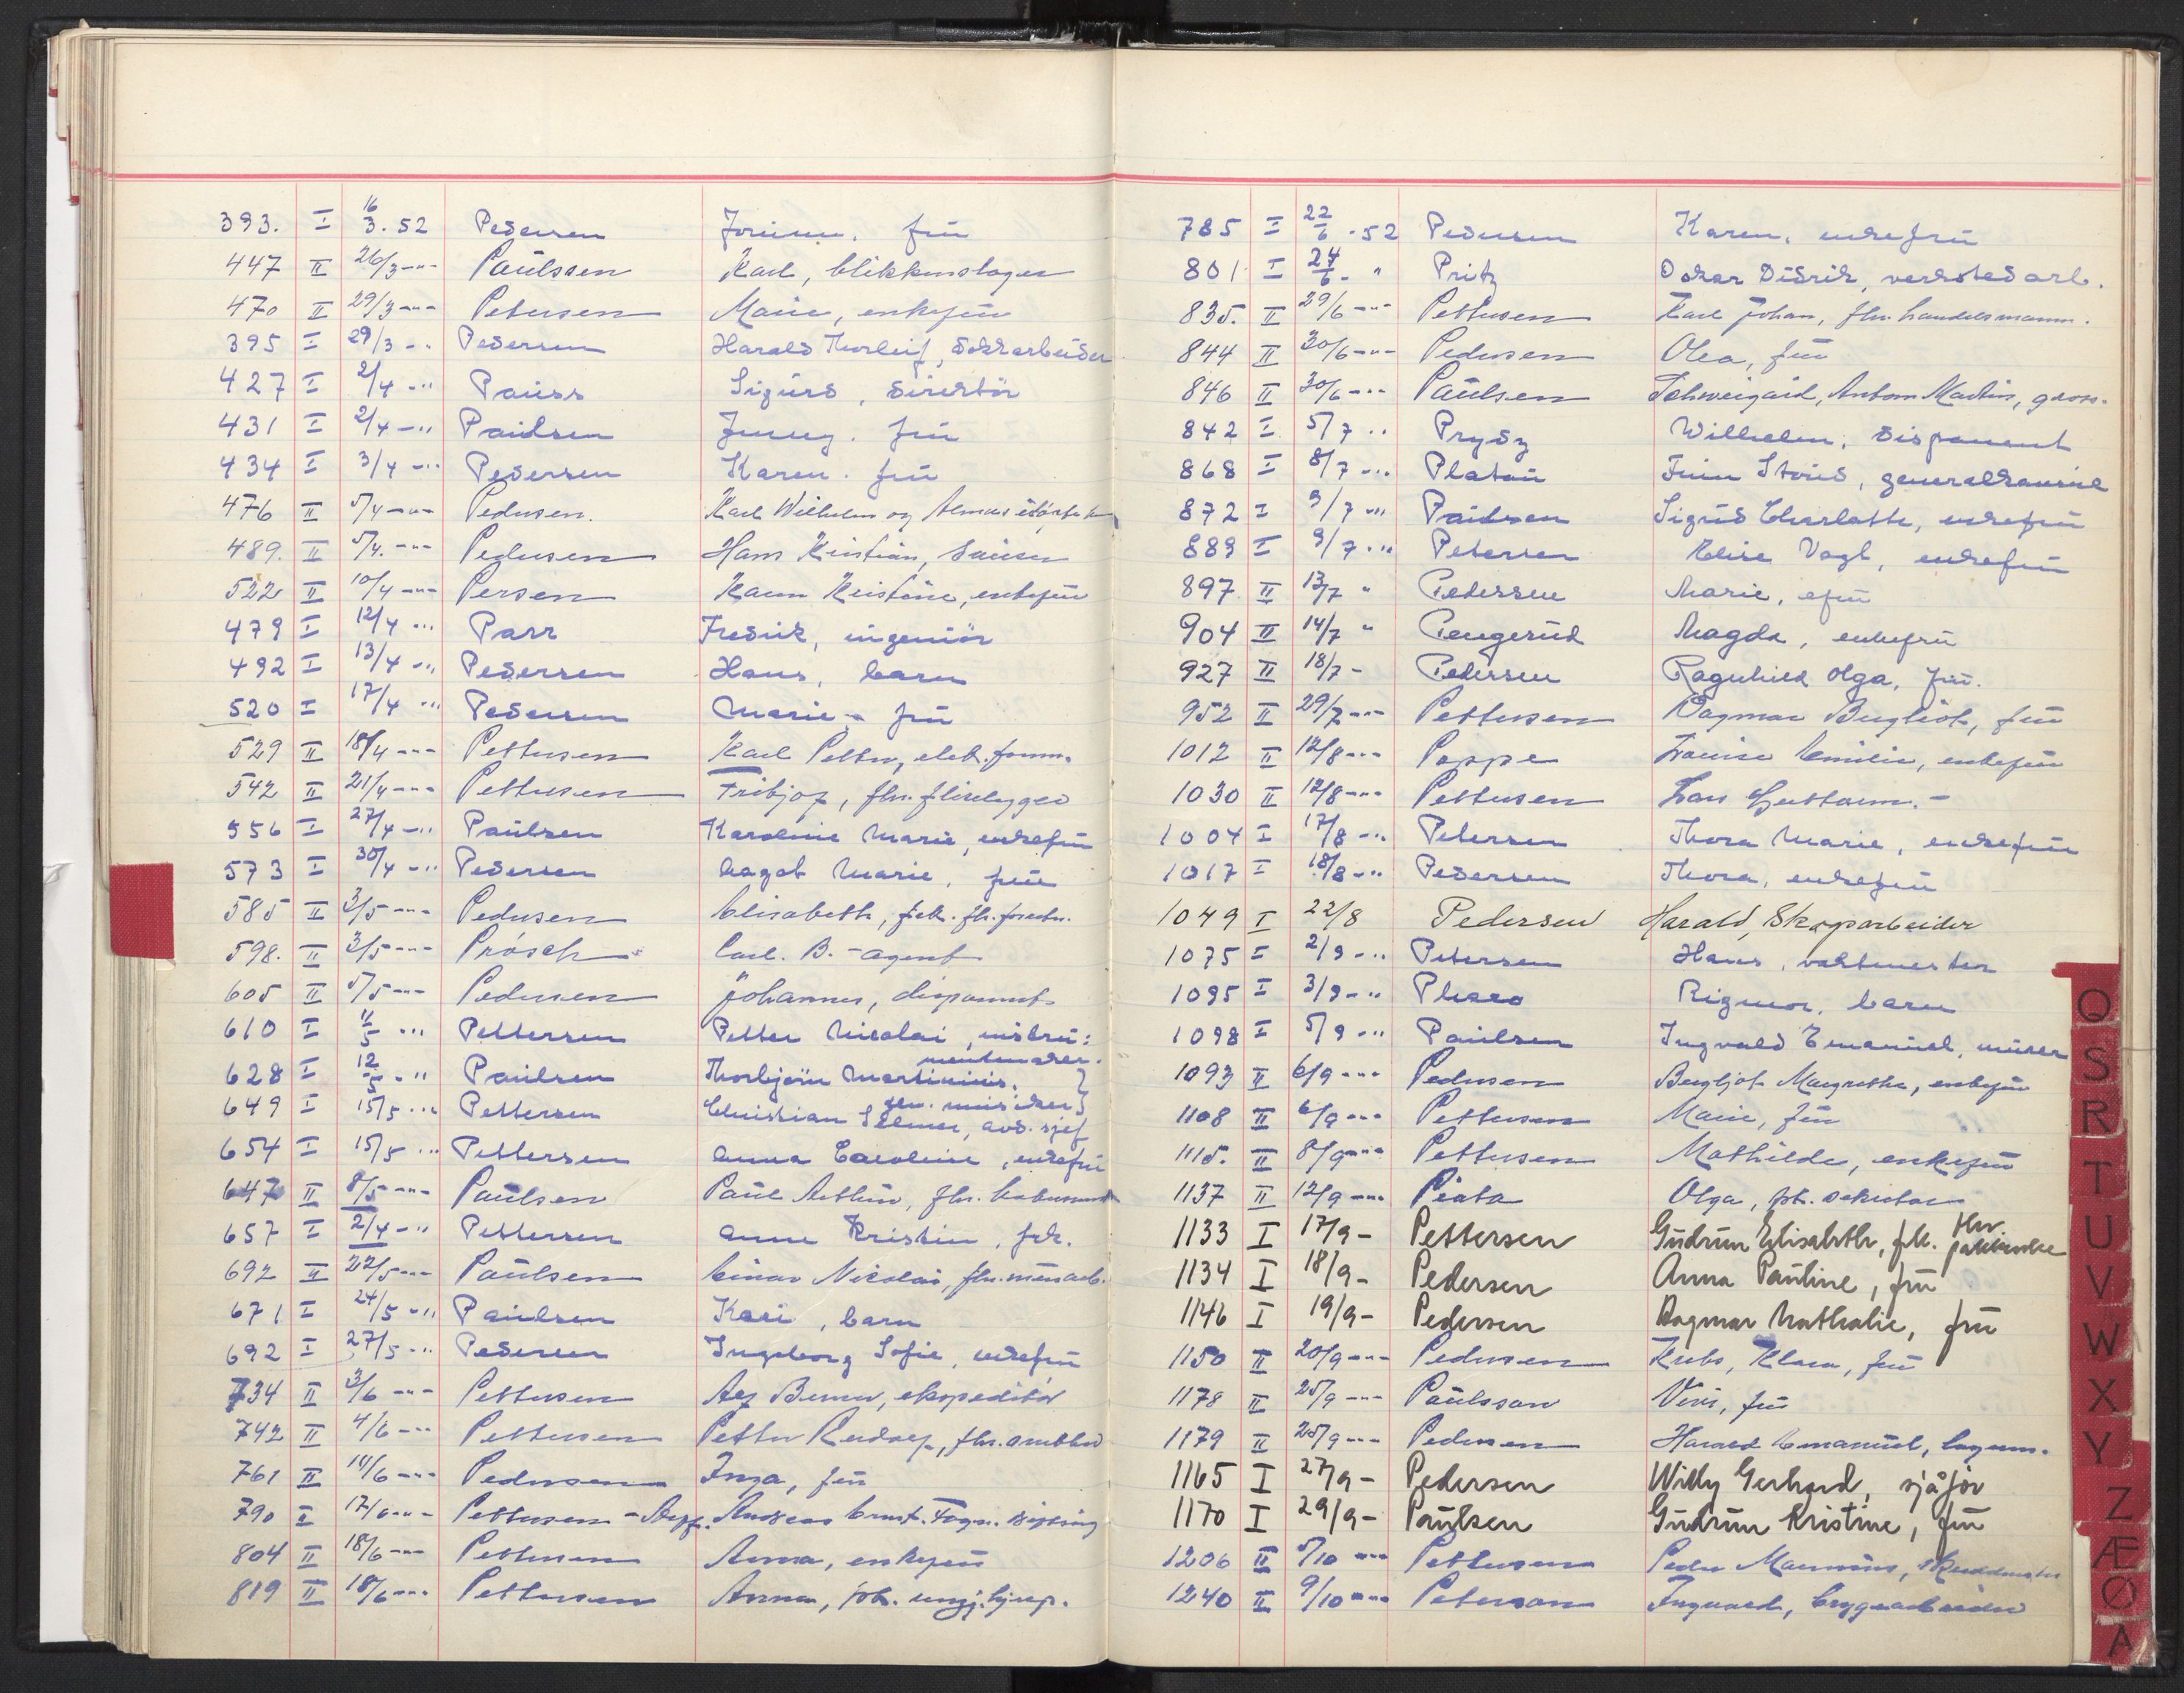 393. I 16/3.52 Pedersen Jorunn, frü
447 II 26/3 -"- Paülssen Karl, blikkenslager
470 II 29/3 -"- Petersen Marie, enkefrü
395 I 29/3 -" Pedersen Harald Thorleif, dokkarbeider
427 I 2/4 -"- Paüss Sigürd, direktör
431 I 2/4 -"- Paülsen Jenny, frü
434 I 3/4 -"- Pedersen Karen, frü
476 II 5/4 -"- Pedersen. Karl Wilhelm og
489. II 5/4. -"- Pedersen Hans Kristian,
522 II 10/4 -"- Persen Karen Kristine, enkefrü
479 I 12/4 -"- Parr Fredrik, ingeniör
492 I 13/4 -"- Pedersen Hans, barn
520 I 17/4 -"- Pedersen Marie, frü
529 II 18/4 -"- Pettersen Karl Petter, elek. form.
542 II 21/4 -"- Pettersen Fritjof, fhv. flislegger
556 I 27/4 -"- Paülsen Karoline Marie, enkefrü
573 I 30/4 -"- Pedersen Aagot Marie, frü
585 II 3/5 -"- Pedersen Elisabeth, frk. fh.
598. II 3/5 -"- Prösch Carl. B. - agent
605 II 5/5 -"- Pedersen Johannes, disponent
610 I 11/5 -"- Pettersen Petter Nicolai, instrü:
mentmaker.
628 I 12/5 -" Paülsen Thorbjörn Martinius, }
fhv. müsiker }
649 I 15/5 -"- Pettersen Christian Selmer, avd. sjef
654 I 15/5 -"- Pettersen Anna Caroline, enkefrü
647 II 8/5 -"- Paülsen Paül Arthür, fhv.
657 I 2/4 -" Pettersen Anne Kristin, frk.
692 II 22/5 -"- Paülsen Einar Nicolai, fhv. mürarb.
671 I 24/5 -"- Paülsen Kari, barn
692 I 27/5 -"- Pedersen Ingeborg Sofie, enkefrü
734 II 3/6 -"- Pettersen Berner, ekspeditör
742 II 4/6 -"- Pettersen Petter Rudolf, fhv.
761 II 14/6 -"- Pedersen Inga, frü
790 II 17/6 -"- Pettersen - Andreas Ernst. Fagn.
804 II 18/6 -"- Pettersen Anna, enkefrü
819 II 18/6 -"- Pettersen Anna, frk. rengj. hjelp.
785 I 22/6 .52 Pedersen Karen, enkefrü
801 I 24/6 - " Pritz Oskar Didrik, verkstedarb.
835. II 29/6 -"- Pettersen Karl Johan, fhv. handelsmann.
844 II 30/6 -"- Pedersen Olea, frü
846 II 30/6 -"- Paülsen Schweigaard, Anton Martin, gross.
842 I 5/7 -" Prydz Wilhelm, disponent
868 I 8/7 -"- Platoü Finn Stoüd, generalkonsül
872 I 9/7 -"- Paülsen Sigrid Charlotte, enkefrü
889 I 9/7 -"- Petersen Elise Vogt, enkefrü
897 II 13/7 " Pedersen Marie, efrü
904 II 14/7 " Pengerüd Magda, enkefrü
927 II 18/7 - Pedersen Ragnhild Olga, frü.
952 II 29/7 -"- Pettersen Dagmar Bergliot, frü
1012 II 12/8 -"- Poppe Louise Emilie, enkefrü
1030 II 12/8 -"- Pettersen Lars Guttorm. -
1004 I 17/8 -"- Petersen Thora Marie, enkefrü
1017 I 18/8 -"- Pedersen Thora, enkefrü
1049 I 22/8 Pedersen Harald, Skogsarbeider
1075 I 2/9 -"- Petersen Hans, vaktmester
1095 I 3/9 -" Rigmor, barn
1098 I 5/9 -"- Paülsen Ingvald Emanüel, mürer
1093 II 6/9 -"- Pedersen Bergljot Margrethe, enkefrü
1108 II 6/9 -"- Pettersen Marie, frü
1115. II 8/9 -"- Pettersen Mathilde, enkefrü
1137 II 12/9 -"- Olga, frk. sekretær
1133 I 17/9 - Pettersen Güdrün Elisabeth, frk. fhv. pakkerske
1134 I 18/9 - Pedersen Anna Paüline, frü
1146 I 19/9 - Pedersen Dagmar Nathalie, frü
1150 II 20/9 -"- Pedersen Krebs, Klara, frü
1178 II 25/9 -"- Paülsson Vivi, frü
1179 II 25/9 -"- Pedersen Harald Emanüel, lagerm.
1165 I 27/9 - Pedersen Willy Gerhard, sjåför
1170 I 29/9 - Paülsen Güdrün Kristine, frü
1206 II 5/10 -"- Pettersen Peder
1240 II 9/10 -"- Peterson Ingvard, bryggearbeider
Q
S
R
T
U
V
W
X
Y
Z
Æ
Ø
A